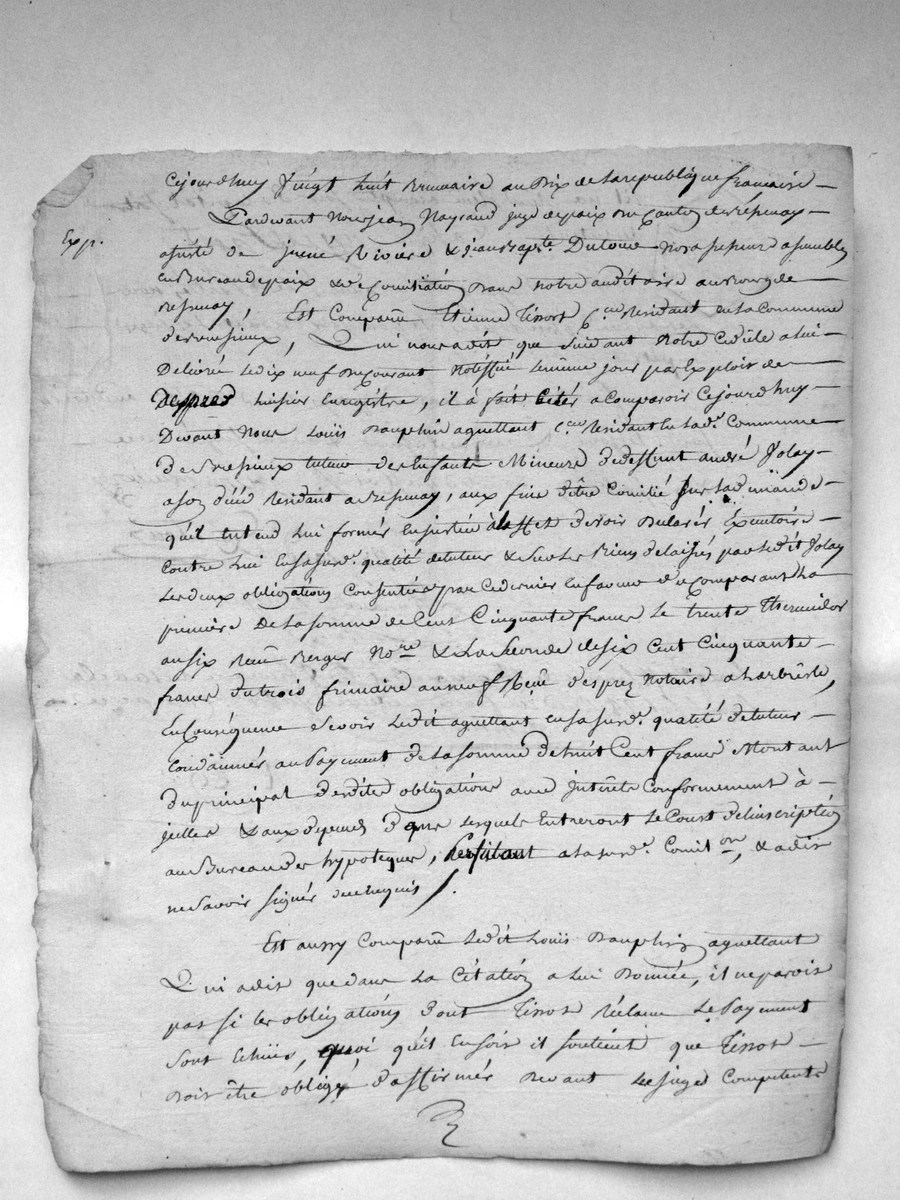 Cejourdhuy Vingt huit Brumaire an Dix de la republique francaise
Pardevant Nous jean Raynaud juge de paix du Canton de Bessenay
Exp.
assisté de Riviere & jean Bapte Dutour Nos assesseurs assemblés
en Bureau de paix & de Conciliation dans notre auditoire au Bourg de
Bessenay, Est Comparu Etienne Tissot Cen Residant en la Commune
de Bressieux, Qui nous a dit que suivant Notre Cedule a lui
Delivrée le dix neuf du Courant Notiffié le même jour par Exploit de
huisier Enregistré, il a fait Citer a Comparoir Cejourdhuy
Devant Nous Louis Dauphin aguettant Cen Residant en la de Commune
de Bressieux tuteur des Enfants Mineurs de deffunt andré Jolay
a son décé Residant a Bessenay, aux fins d'être Concilié sur la demande
qu'il entend lui former en justice à l'effet de voir Declarer Executoire
Contre lui en sa susde qualité de tuteur & sur les Biens delaissés par ledit Jolay
les deux obligations Consenties par ce dernier en faveur du Comparant La
premiere De la somme de Cent Cinquante francs le trente thermidor
an six Reçu Berger Nore & La seconde de six Cent Cinquante
francs du trois frimaire an neuf Reçue Desprez Notaire a Larbresle,
En Conséquence se voir ledit aguettant en sa susde qualité de tuteur
Condamner au Payement de la somme de huit Cent francs Montant
du principal desdites obligations avec intérêts Conformement à
jcelles & aux depens dans lesquels Entreront le Cout de l'inscription
au Bureau des hypoteques, a la susde Conciton, & a dit
ne Savoir signer de ce Requis /.
Est aussy Comparu ledit Louis Dauphin aguettant
Qui a dit que dans la Citation a lui Donnée, il ne paroit
pas si les obligations dont Tissot Réclame le Payement
sont Echües, quoi qu'il En soit il soutient que Tissot
Doit être obligé d'affirmer Devant les juges Competents